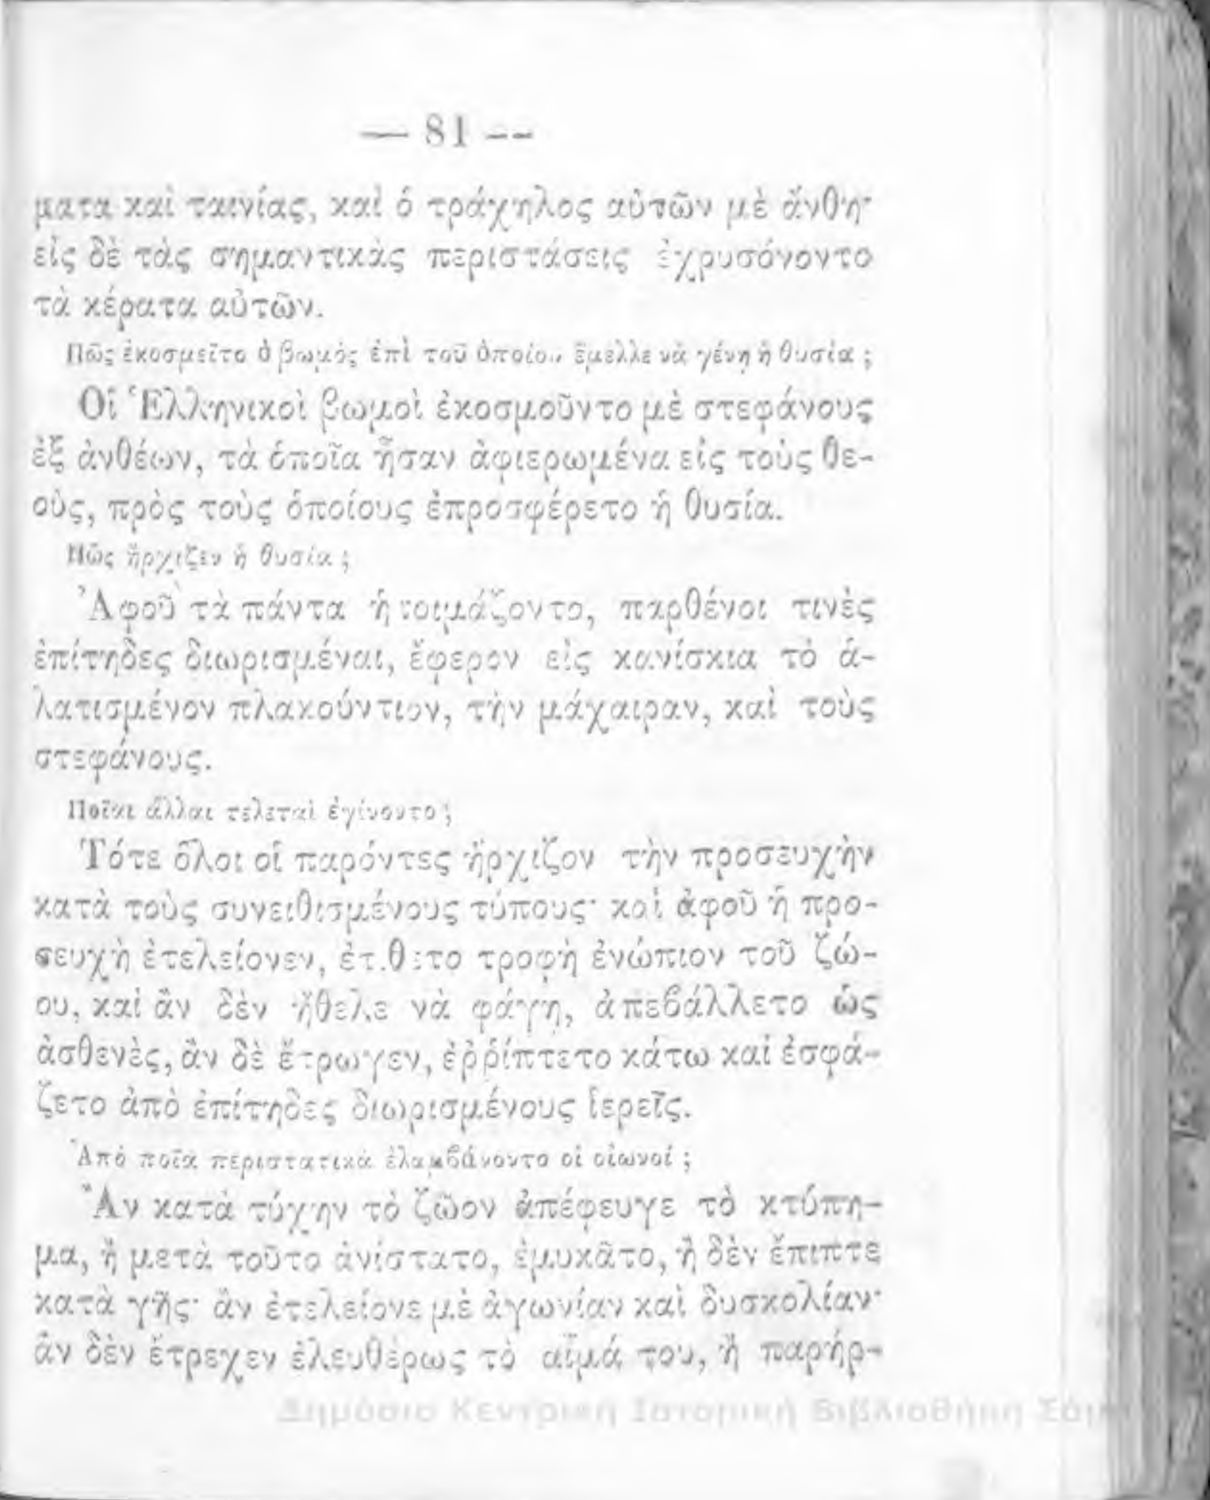 — 81 —
ματα καὶ ταινίας, καὶ ὁ τράχηλος αὐτῶν μὲ ἄνθη·
εἰς δὲ τὰς σημαντικὰς περιστάσεις ἐχρυσόνοντο
τὰ κέρατα αὐτῶν.
Πῶς ἐκοσμεῖτο ὁ βωμὸς ἐπὶ τοῦ ὁποίου ἔμελλε νὰ γένῃ ἡ θυσία ;
Οἱ Ἑλληνικοὶ βωμοὶ ἐκοσμοῦντο μὲ στεφάνους
ἐξ ἀνθέων, τὰ ὁποῖα ἦσαν ἀφιερωμένα εἰς τοὺς θε-
οὺς, πρὸς τοὺς ὁποίους ἐπροσφέρετο ἡ θυσία.
Πῶς ἤρχιζεν ἡ θυσία ;
Ἀφοῦ τὰ πάντα ἡτοιμάζοντο, παρθένοι τινὲς
ἐπίτηδες διωρισμέναι, ἔφερον εἰς κανίσκια τὸ ἁ-
λατισμένον πλακούντιον, τὴν μάχαιραν, καὶ τοὺς
στεφάνους.
Ποῖαι ἄλλαι τελεταὶ ἐγίνοντο ;
Τότε ὅλοι οἱ παρόντες ἤρχιζον τὴν προσευχὴν
κατὰ τοὺς συνειθισμένους τύπους· καὶ ἀφοῦ ἡ προ-
σευχὴ ἐτελείονεν, ἐτίθετο τροφὴ ἐνώπιον τοῦ ζώ-
ου, καὶ ἂν δὲν ἤθελε νὰ φάγῃ, ἀπεβάλλετο ὡς
ἀσθενὲς, ἂν δὲ ἔτρωγεν, ἐῤῥίπτετο κάτω καὶ ἐσφά-
ζετο ἀπὸ ἐπίτηδες διωρισμένους ἱερεῖς.
Ἀπὸ ποῖα περιστατικὰ ἐλαμβάνοντο οἱ οἰωνοί ;
Ἂν κατὰ τύχην τὸ ζῶον ἀπέφευγε τὸ κτύπη-
μα, ἢ μετὰ τοῦτο ἀνίστατο, ἐμυκᾶτο, ἢ δὲν ἔπιπτε
κατὰ γῆς· ἂν ἐτελείονε μὲ ἀγωνίαν καὶ δυσκολίαν·
ἂν δὲν ἔτρεχεν ἐλευθέρως τὸ αἷμά του, ἢ παρήρ-
Δημόσια Κεντρική Ιστορική Βιβλιοθήκη